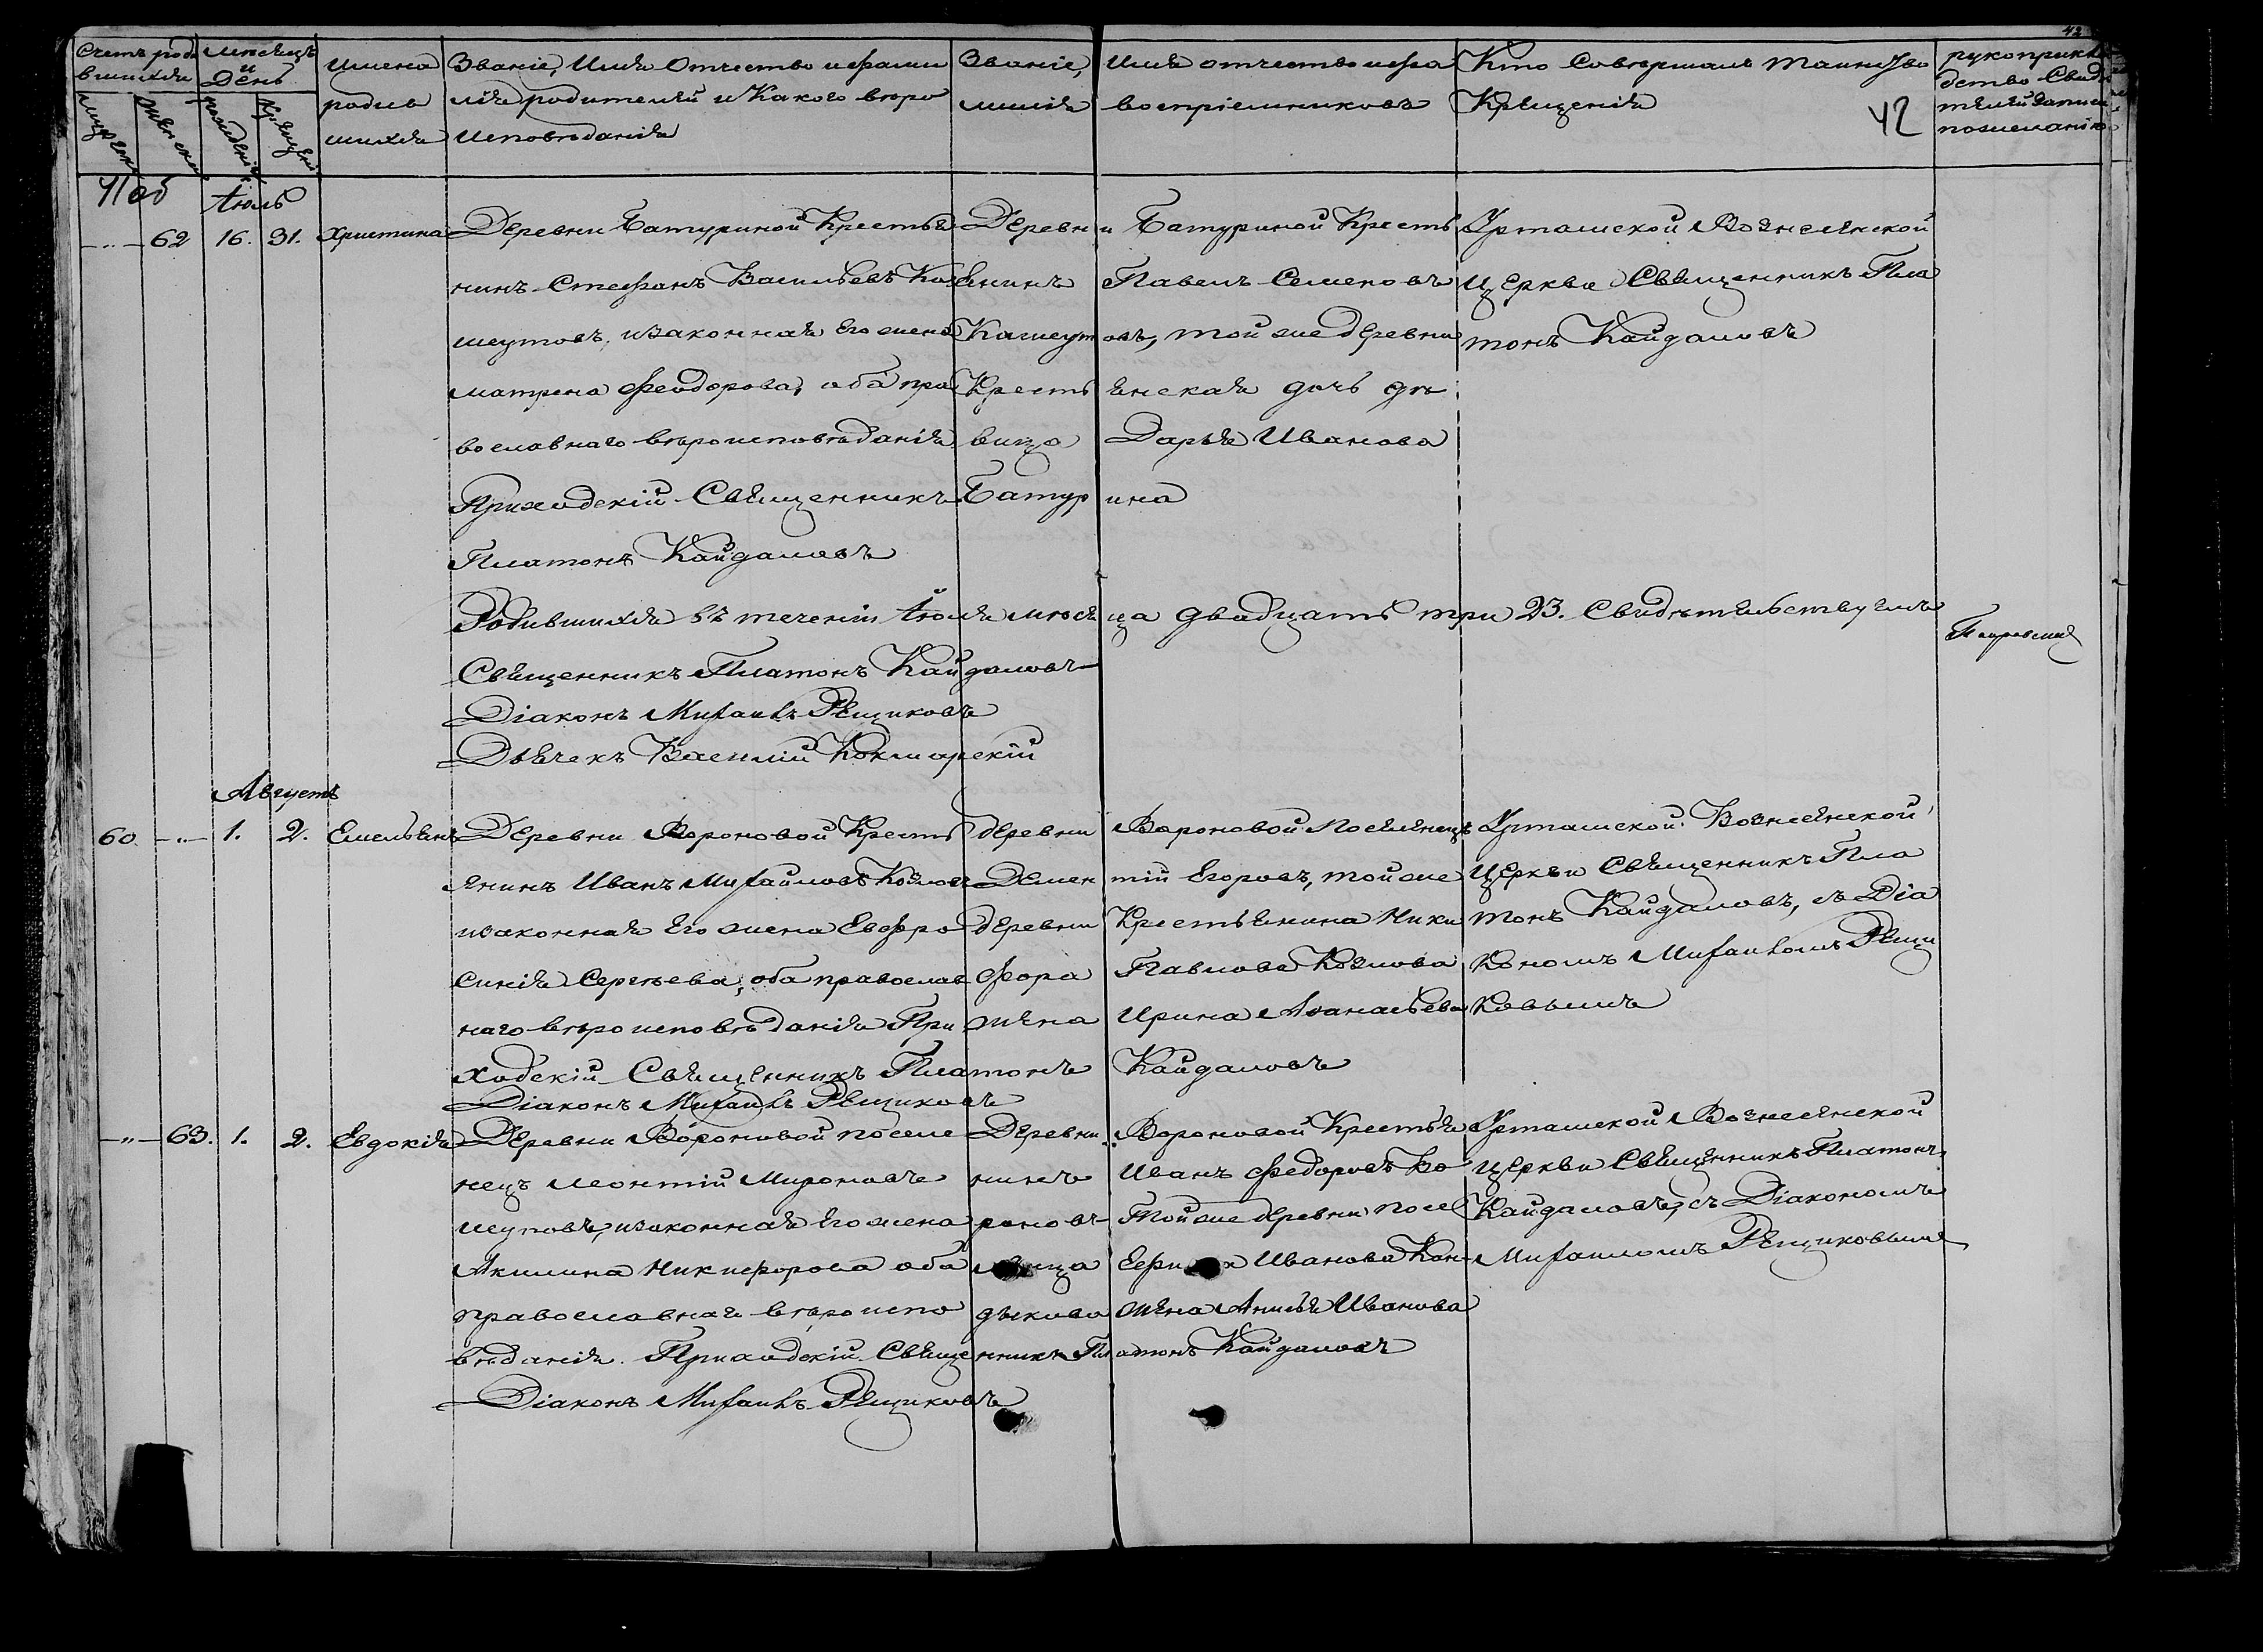 42
Счетъ роди
вшихся
Мѣсяцъ
и
День
Имена
родив
шихся
Званіе, Имя Отчество и фами
лія родителей и Какого вѣро
исповѣданія
Званіе, Имя отчество и фа
милія воспріемниковъ
Кто Совершалъ Таинство
Крещенія
42
рукоприкла
дство Свидѣ
телей записи
по желанію
Мужеска
Женска
рожденія
Крещенія
41об
Іюль
62 16. 31. Христина
Деревни Батуриной Крестья
нинъ Стефанъ Васильевъ Ка
шеутовъ, и законная его жена
Матрена Феодорова, оба пра
вославнаго вѣроисповѣданія
Приходскій Священникъ
Платонъ Кайдаловъ
Деревни Батуриной Кресть
янинъ Павелъ Семеновъ
Кашеутовъ, той же деревни
Крестьянская дочь дѣ
вица Дарья Иванова
Батурина
Урташской Вознесенской
Церкви Священникъ Пла
тонъ Кайдаловъ
Родившихся въ теченіи Іюля мѣсяца двадцать три 23. Свидѣтельствуемъ
Священникъ Платонъ Кайдаловъ
Діаконъ Михаилъ Рещиковъ
Дьячекъ Василій
Августъ
60. 1. 2. Емельянъ
Деревни Вороновой Кресть
янинъ Иванъ Михайловъ Козловъ
и законная его жена Евфро
синія Сергѣева, оба православ
наго вѣроисповѣданія При
ходскій Священникъ Платонъ Кайдаловъ
Діаконъ Михаилъ Рещиковъ
деревни Вороновой Поселенецъ
Дементій Егоровъ, той же
деревни Крестьянина Ники
фора Павлова Козлова
жена Ирина Аѳанасьева
Урташской Вознесенской
Церкви Священникъ Пла
тонъ Кайдаловъ, съ Діа
кономъ Михаиломъ Рещи
ковымъ
63. 1. 2. Евдокія
Деревни Вороновой поселе
нецъ Леонтій Мироновъ
и законная его жена
Акилина Никифорова оба
православнаго вѣроиспо
вѣданія. Приходскій Священникъ Платонъ Кайдаловъ
Діаконъ Михаилъ Рещиковъ
Деревни Вороновой Крестья
нинъ Иванъ Федоровъ Во
роновъ Той же деревни посе
Иванова Кон
дыкова жена Анисья Иванова
Урташской Вознесенской
Церкви Священникъ Платонъ
Кайдаловъ, съ Діакономъ
Михаиломъ Рещиковымъ